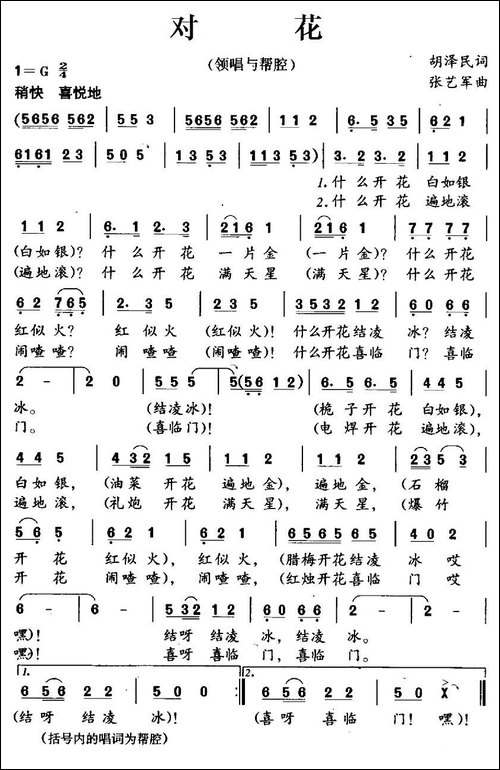 对 花
(领唱与帮腔)
胡泽民词
张艺军曲
1=G 2/4
稍快 喜悦地
(5656 562 | 5 5 3 | 5656 562 | 1 1 2 | 6. 5 3 5 | 6 2 1 |
6161 2 3 | 5 0 5 | 1 3 5 3 | 1 1 3 5 3) | 3. 2 3. 2 | 1 1 2 |
1.什么开花 白如银
2.什么开花 遍地滚
1 1 2 | 6. 1 2. 3 | 2 1 6 1 | 2 1 6 1 | 7 7 7 7 |
(白如银)? 什么开花 一片金 (一片金)? 什么开花
(遍地滚)? 什么开花 满天星 (满天星)? 什么开花
6 2 7 6 5 | 2. 3 5 | 2. 3 5 | 3 5 3 2 1 1 2 | 6 0 6 6 |
红似火? 红似火 (红似火)! 什么开花结凌 冰? 结凌
闹喳喳? 闹喳喳 (闹喳喳)! 什么开花喜临 门? 喜临
2 - | 2 0 | 5 5 5 | 5 (5 6 1 2) | 6. 5 6. 5 | 4 4 5 |
冰。 (结凌冰)! (桅子开花 白如银),
门。 (喜临门)! (电焊开花 遍地滚),
4 4 5 | 4 4 3 2 | 1 1 2 | 1 1 2 | 2 3 5 3 |
白如银, (油菜开花 遍地金), 遍地金, (石榴
遍地滚, (礼炮开花 满天星), 满天星, (爆竹
5 6 5. | 6 2 1 | 6 2 1 | 6 5 6 5 6 5 | 4 0 2 |
开花 红似火), 红似火, (腊梅开花结凌 冰哎
开花 闹喳喳), 闹喳喳, (红烛开花喜临 门哎
6 - | 6 - | 5 5 3 2 2 | 6 0 6 6 | 2 - | 2 - |
嘿)! 结呀结凌 冰,结凌 冰。
嘿)! 喜呀喜临 门,喜临 门。
1. 2.
6 5 6 2 2 | 5 0 0 :‖ 6 5 6 2 2 | 5 0 X ‖
(结呀 结凌 冰)! (喜呀 喜临 门! 嘿)!
(括号内的唱词为帮腔)